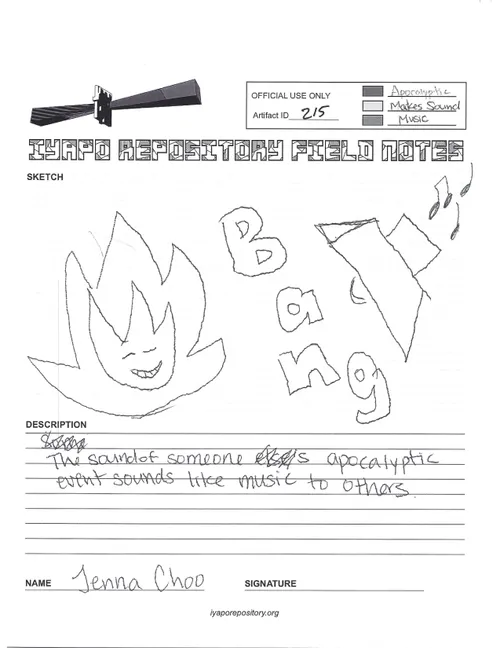 OFFICIAL USE ONLY
Artifact ID 215
Apocalyptic
Makes Sound
Music
IYAPO REPOSITORY FIELD NOTES
SKETCH
Bang
DESCRIPTION
The sound of someone's apocalyptic
event sounds like music to others.
NAME Jenna Choo
SIGNATURE
iyaporepository.org